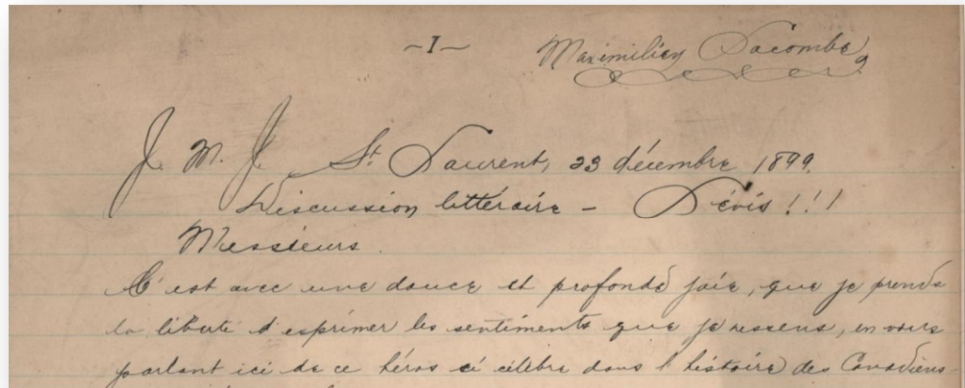 ~I~
Maximilien Lacombe
J. M. J. St Laurent, 23 décembre 1899.
Discussion littéraire – Lévis!!!
Messieurs.
C'est avec une douce et profonde joie, que je prends
la liberté d'exprimer les sentiments que je ressens, en vous
parlant ici de ce héros si célèbre dans l'histoire des Canadiens-